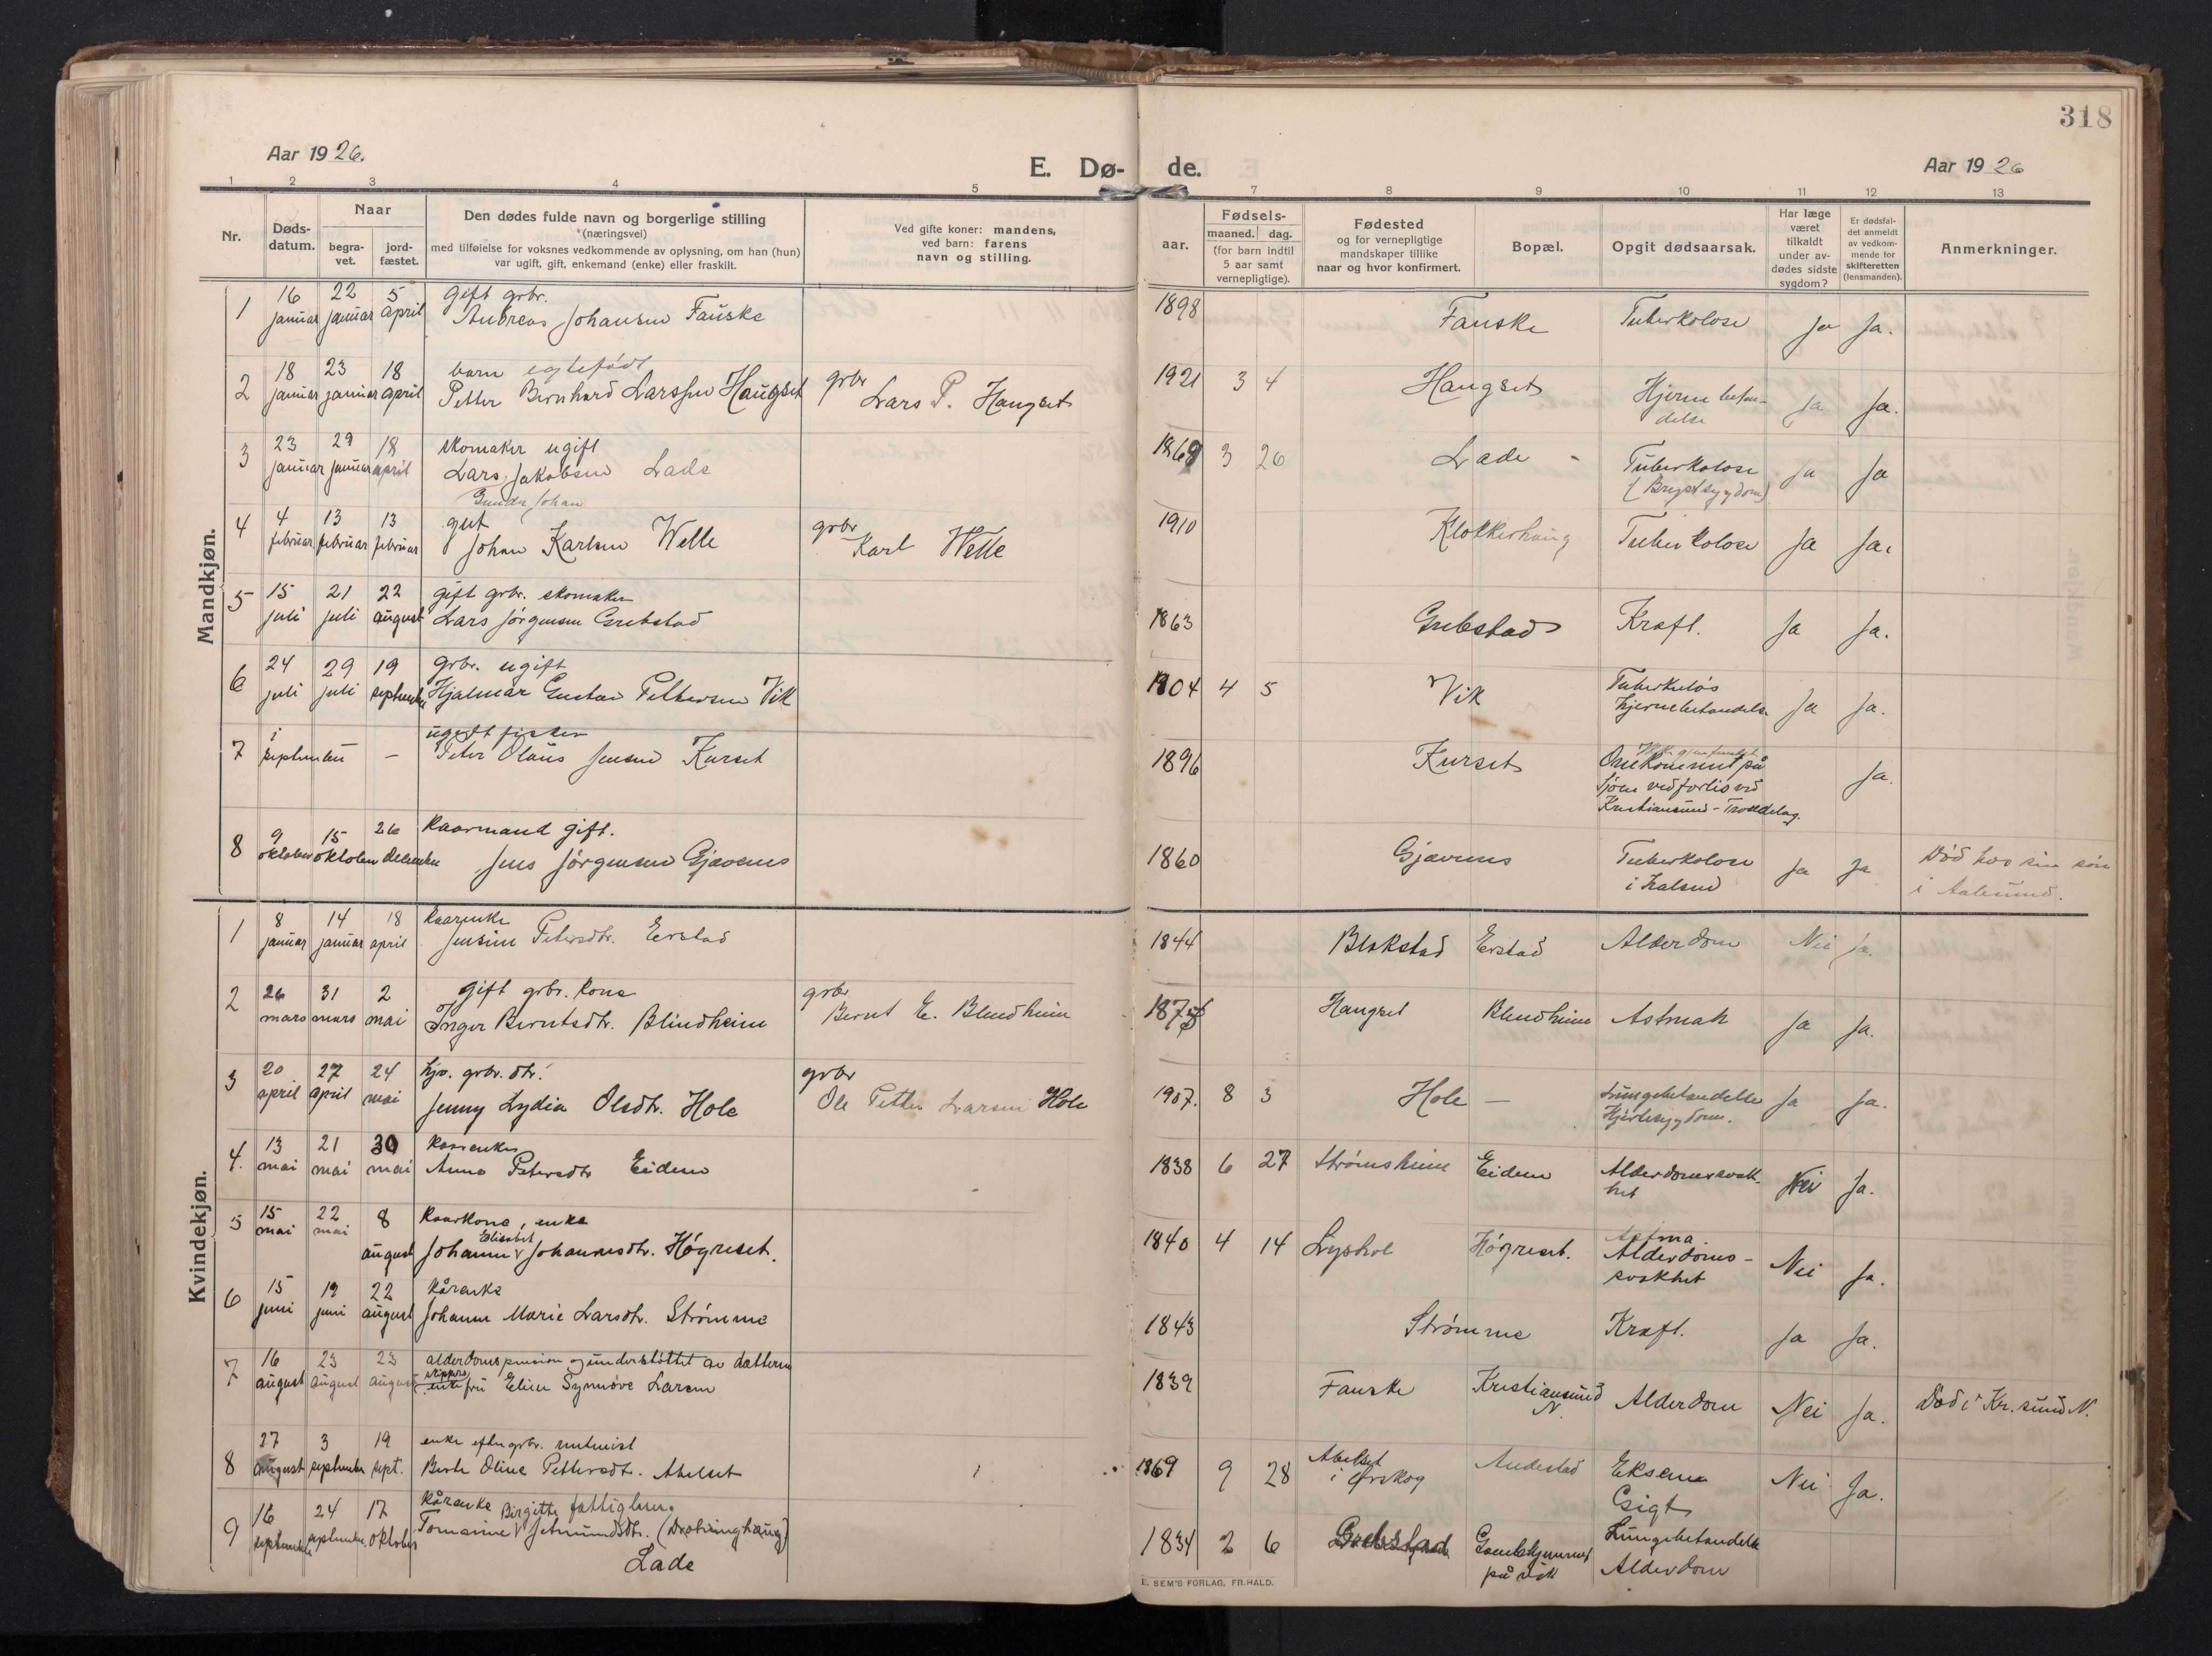 318
Aar 1926.
E. Dø- de.
Aar 1926
1 2 3 4 5 7 8 9 10 11 12 13
Nr.
Døds-
datum.
Naar
begra-
vet.
jord-
fæstet.
Den dødes fulde navn og borgerlige stilling
(næringsvei)
med tilføielse for voksnes vedkommende av oplysning, om han (hun)
var ugift, gift, enkemand (enke) eller fraskilt.
Ved gifte koner: mandens,
ved barn: farens
navn og stilling.
aar.
Fødsels-
maaned. dag.
(for barn indtil
5 aar samt
vernepligtige).
Fødested
og for vernepligtige
mandskaper tillike
naar og hvor konfirmert.
Bopæl.
Opgit dødsaarsak.
Har læge
været
tilkaldt
under av-
dødes sidste
sygdom?
Er dødsfal-
det anmeldt
av vedkom-
mende for
skifteretten
(lensmanden).
Anmerkninger.
Mandkjøn.
1 16 januar 22 januar 5 april gift grbr. 1898 Fauske Tuberkolose Ja Ja.
Andreas Johansen Fauske
2 18 januar 23 januar 18 april barn egtefødt grbr 1921 3 4 Haugset Hjernebeten-
Petter Bernhard Larssen Haugset Lars P. Haugset delse Ja Ja.
3 23 januar 29 januar 18 april skomaker ugift 1869 3 26 Lade - Tuberkolose Ja Ja
Lars Jakobsen Lade (Brystsygdom)
Gunder Johan
4 4 februar 13 februar 13 februar gut grbr 1910 Klokkerhaug Tuberkolose Ja Ja.
Johan Karlsen Welle Karl Welle
5 15 juli 21 juli 22 august gift grbr. skomaker 1863 Grebstad Kræft. Ja Ja.
Lars Jørgensen Grebstad
6 24 juli 29 juli 19 september grbr. ugift 1904 4 5 Vik Tuberkuløs
Hjalmar Gustav Pettersen Vik hjernebetendelse Ja Ja.
7 i september - ugift fisker 1896 Kurset
Peter Olaus Jensen Kurset Omkommet på
sjøen ved forlis ved Ja.
Kristiansund - Trøndelag.
8 9 oktober 15 oktober 26 desember Kaarmand gift. 1860 Gjævenes Tuberkolose Ja Ja Død hos sin søn
Jens Jørgensen Gjævenes i halsen i Aalesund.
Kvindekjøn.
1 8 januar 14 januar 18 april Kaarenke 1844 Blakstad Erstad Alderdom Nei Ja.
Jensine Petersdtr. Erstad
2 26 mars 31 mars 2 mai gift grbr. kone grbr 1875 Haugset Blindheim Astmah Ja Ja.
Inger Berntsdtr. Blindheim Bernt E. Blindheim
3 20 april 27 april 24 mai hjv. grbr. dtr. grbr 1907. 8 3 Hole - Lungebetendelse Ja Ja.
Jenny Lydia Olsdtr. Hole Ole Petter Larsen Hole Hjertesygdom.
4. 13 mai 21 mai 30 mai Kaarenke 1838 6 27 Strømsheim Eidem Alderdomssvak-
Anna Petersdtr Eidem het Nei Ja.
5 15 mai 22 mai 8 august Kaarkone, enke 1840 4 14 Lyshol Høgreset. Astma
Elisabet Alderdoms-
Johanne Johannesdtr. Høgreset. svakhet Nei Ja.
6 15 juni 19 juni 22 august Kårenke 1843 Strømme Kræft. Ja Ja.
Johanne Marie Larsdtr. Strømme
7 16 august 23 august 23 august alderdomspension og understøttet av datteren 1839 Fauske Kristiansund N. Alderdom Nei Ja. Død i Kr.sund N.
enkefru Eline Synnøve Larsen
8 27 august 3 september 19 sept. enke efter grbr. 1869 9 28 Abelset i Ørskog Andestad Eksem Nei Ja.
Berte Oline Pettersdtr. Abelset Gigt
9 16 september 24 september 17 oktober Kårenke Birgitte fattiglem. 1834 2 6 Grebstad Gamlehjemmet på Vik Lungebetendelse
Tomasine Jetmundsdtr. Alderdom
Lade
E. SEM'S FORLAG, FR.HALD.